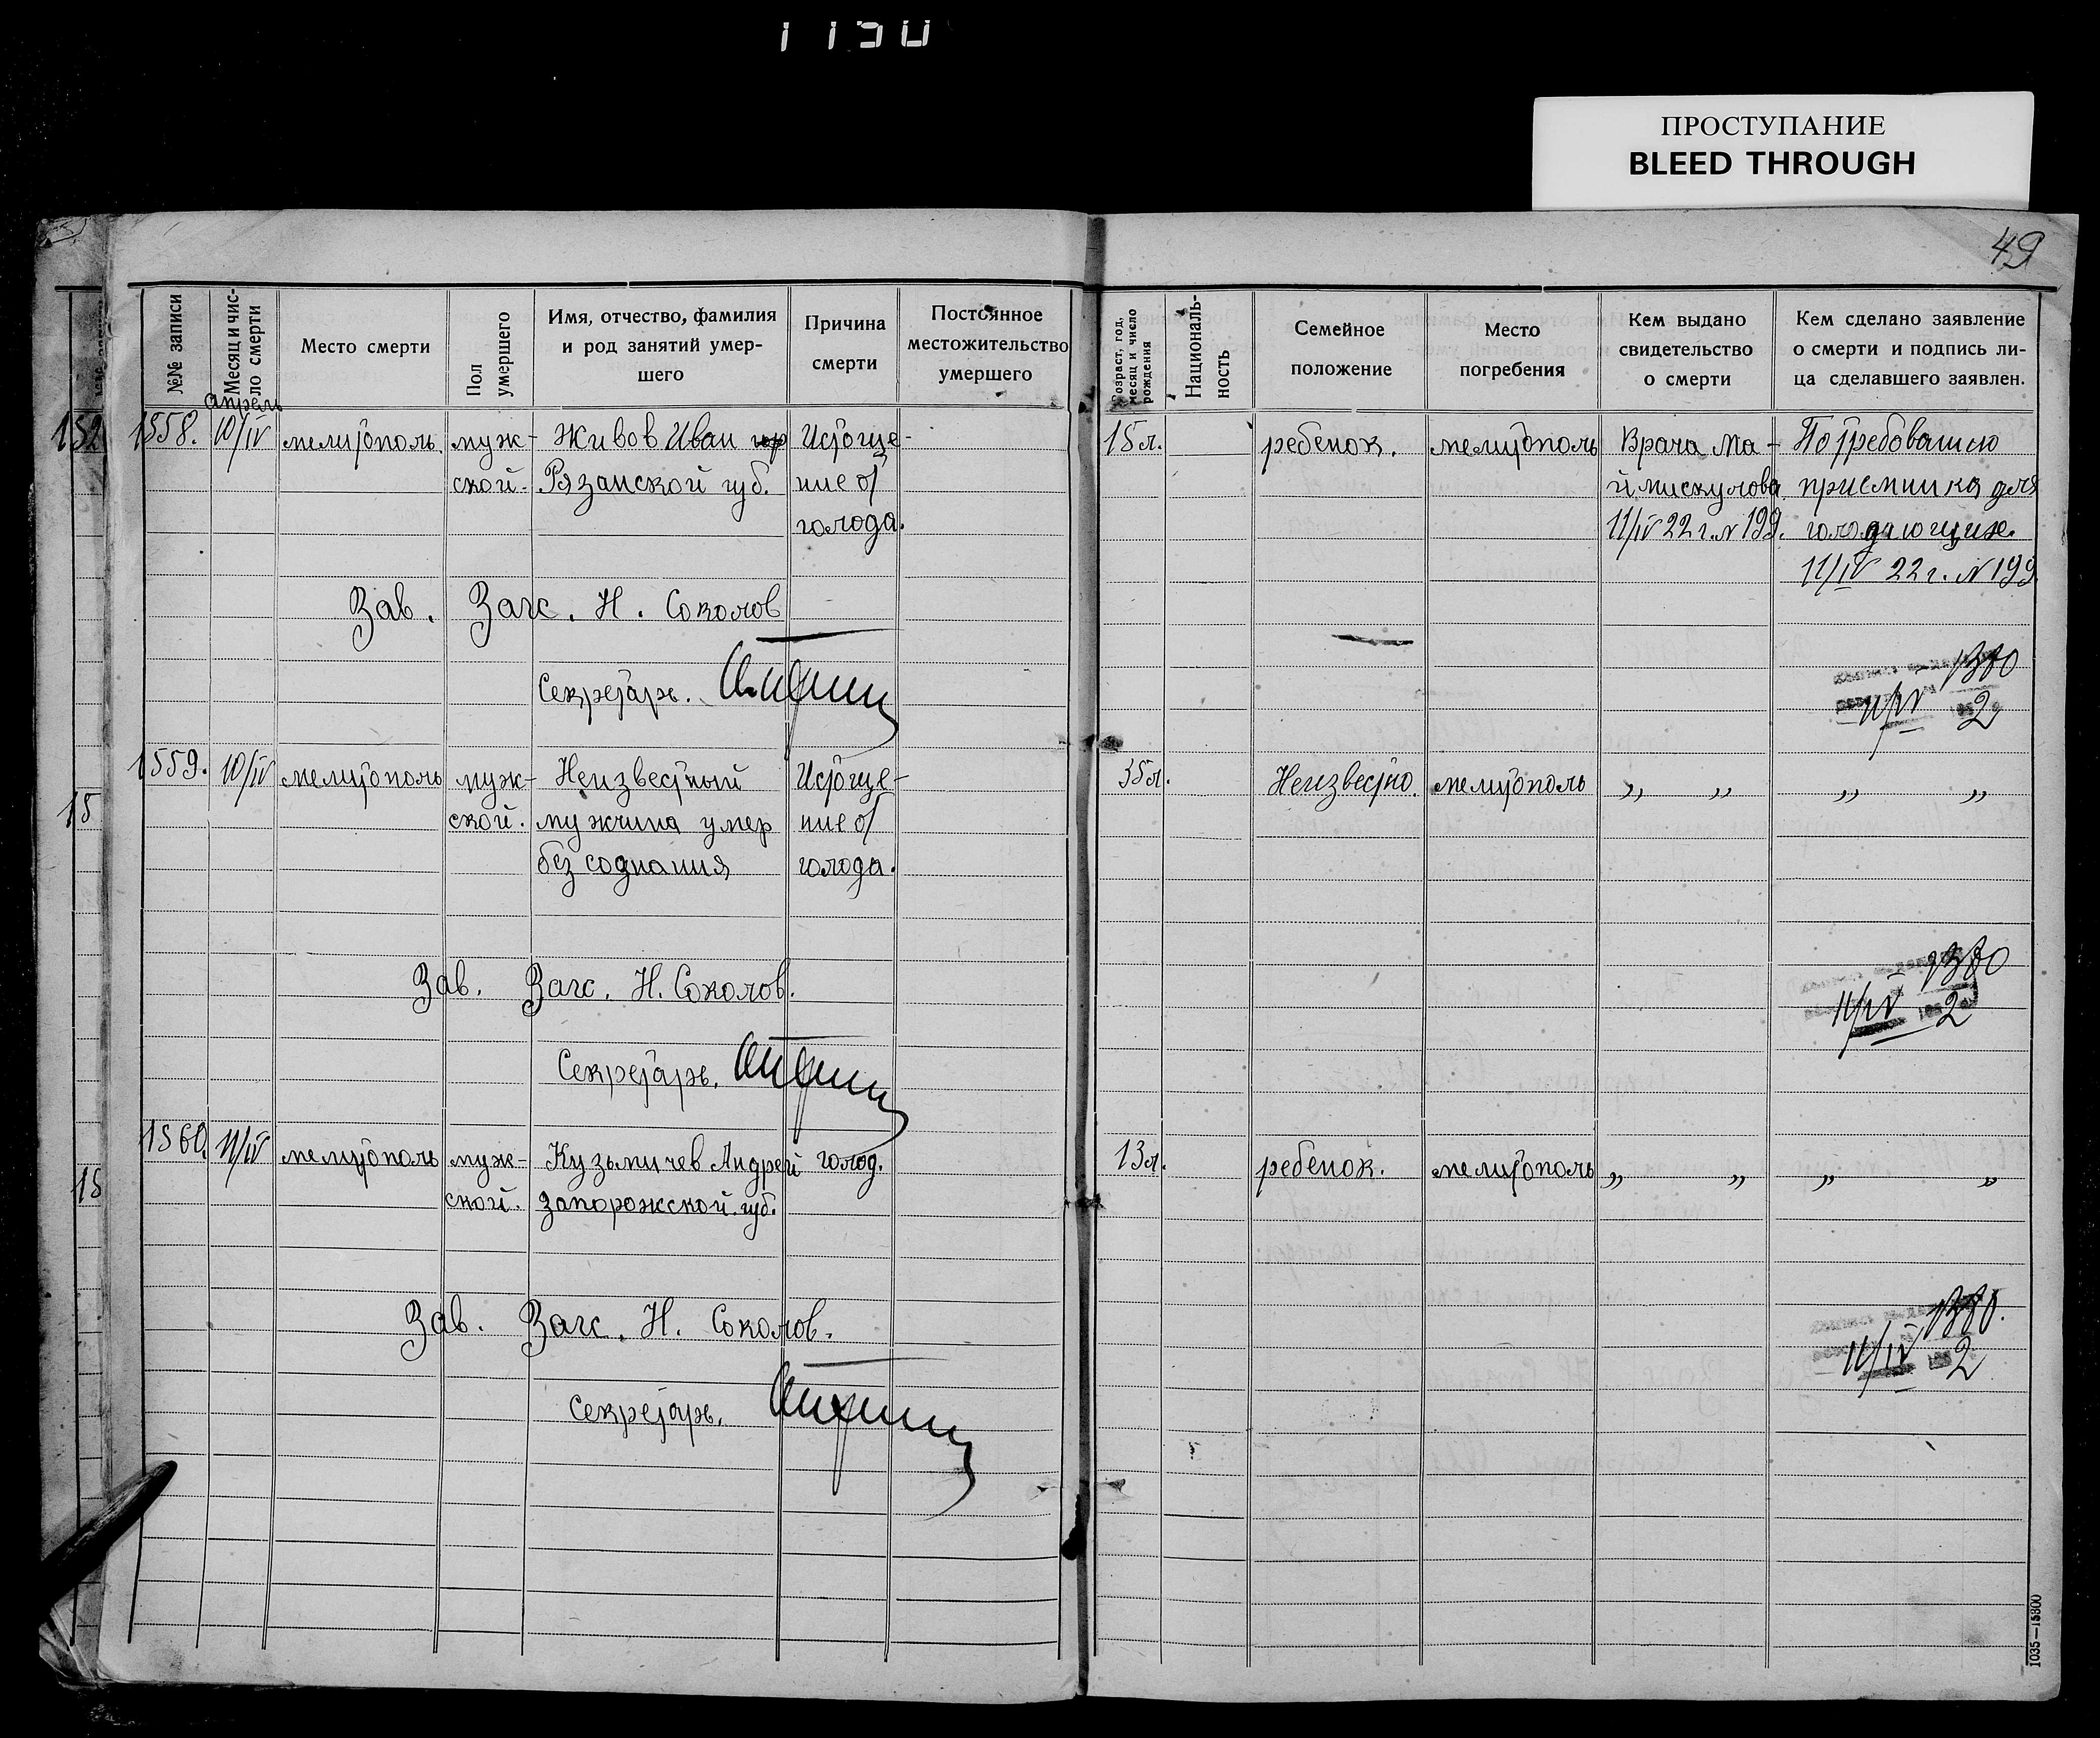 1150
ПРОСТУПАНИЕ
BLEED THROUGH
49
№№ записи
Месяц и чис-
ло смерти
Место смерти
Пол
умершего
Имя, отчество, фамилия
и род занятий умер-
шего
Причина
смерти
Постоянное
местожительство
умершего
Возраст, год,
месяц и число
рождения
Националь-
ность
Семейное
положение
Место
погребения
Кем выдано
свидетельство
о смерти
Кем сделано заявление
о смерти и подпись ли-
ца сделавшего заявлен.
апрель
152
1558. 10/IV мелитополь. муж- Живов Иван Истоще- 15 л. ребенок. мелитополь Врача Ма- По требованию
ской. Рязанской губ. ние от ймискулова приемника для
голода. 11/IV 22 г. N 199. голодающих.
11/IV 22 г. N 199
Зав. Загс. Н. Соколов
1380
Секретарь.
11/IV 2
1559. 10/IV мелитополь муж- Неизвестный Истоще- 35 л. Неизвестно. мелитополь „ „ „ „
15
ской. мужчина умер ние от
без сознания голода.
1380
Зав. Загс. Н. Соколов.
11/IV 2
Секретарь.
1560. 11/IV мелитополь муж- Кузьмичев Андрей голод. 13 л. ребенок. мелитополь „ „ „ „
15
ской. Запорожской губ.
1380.
Зав. Загс. Н. Соколов.
11/IV 2
Секретарь.
1035—15800